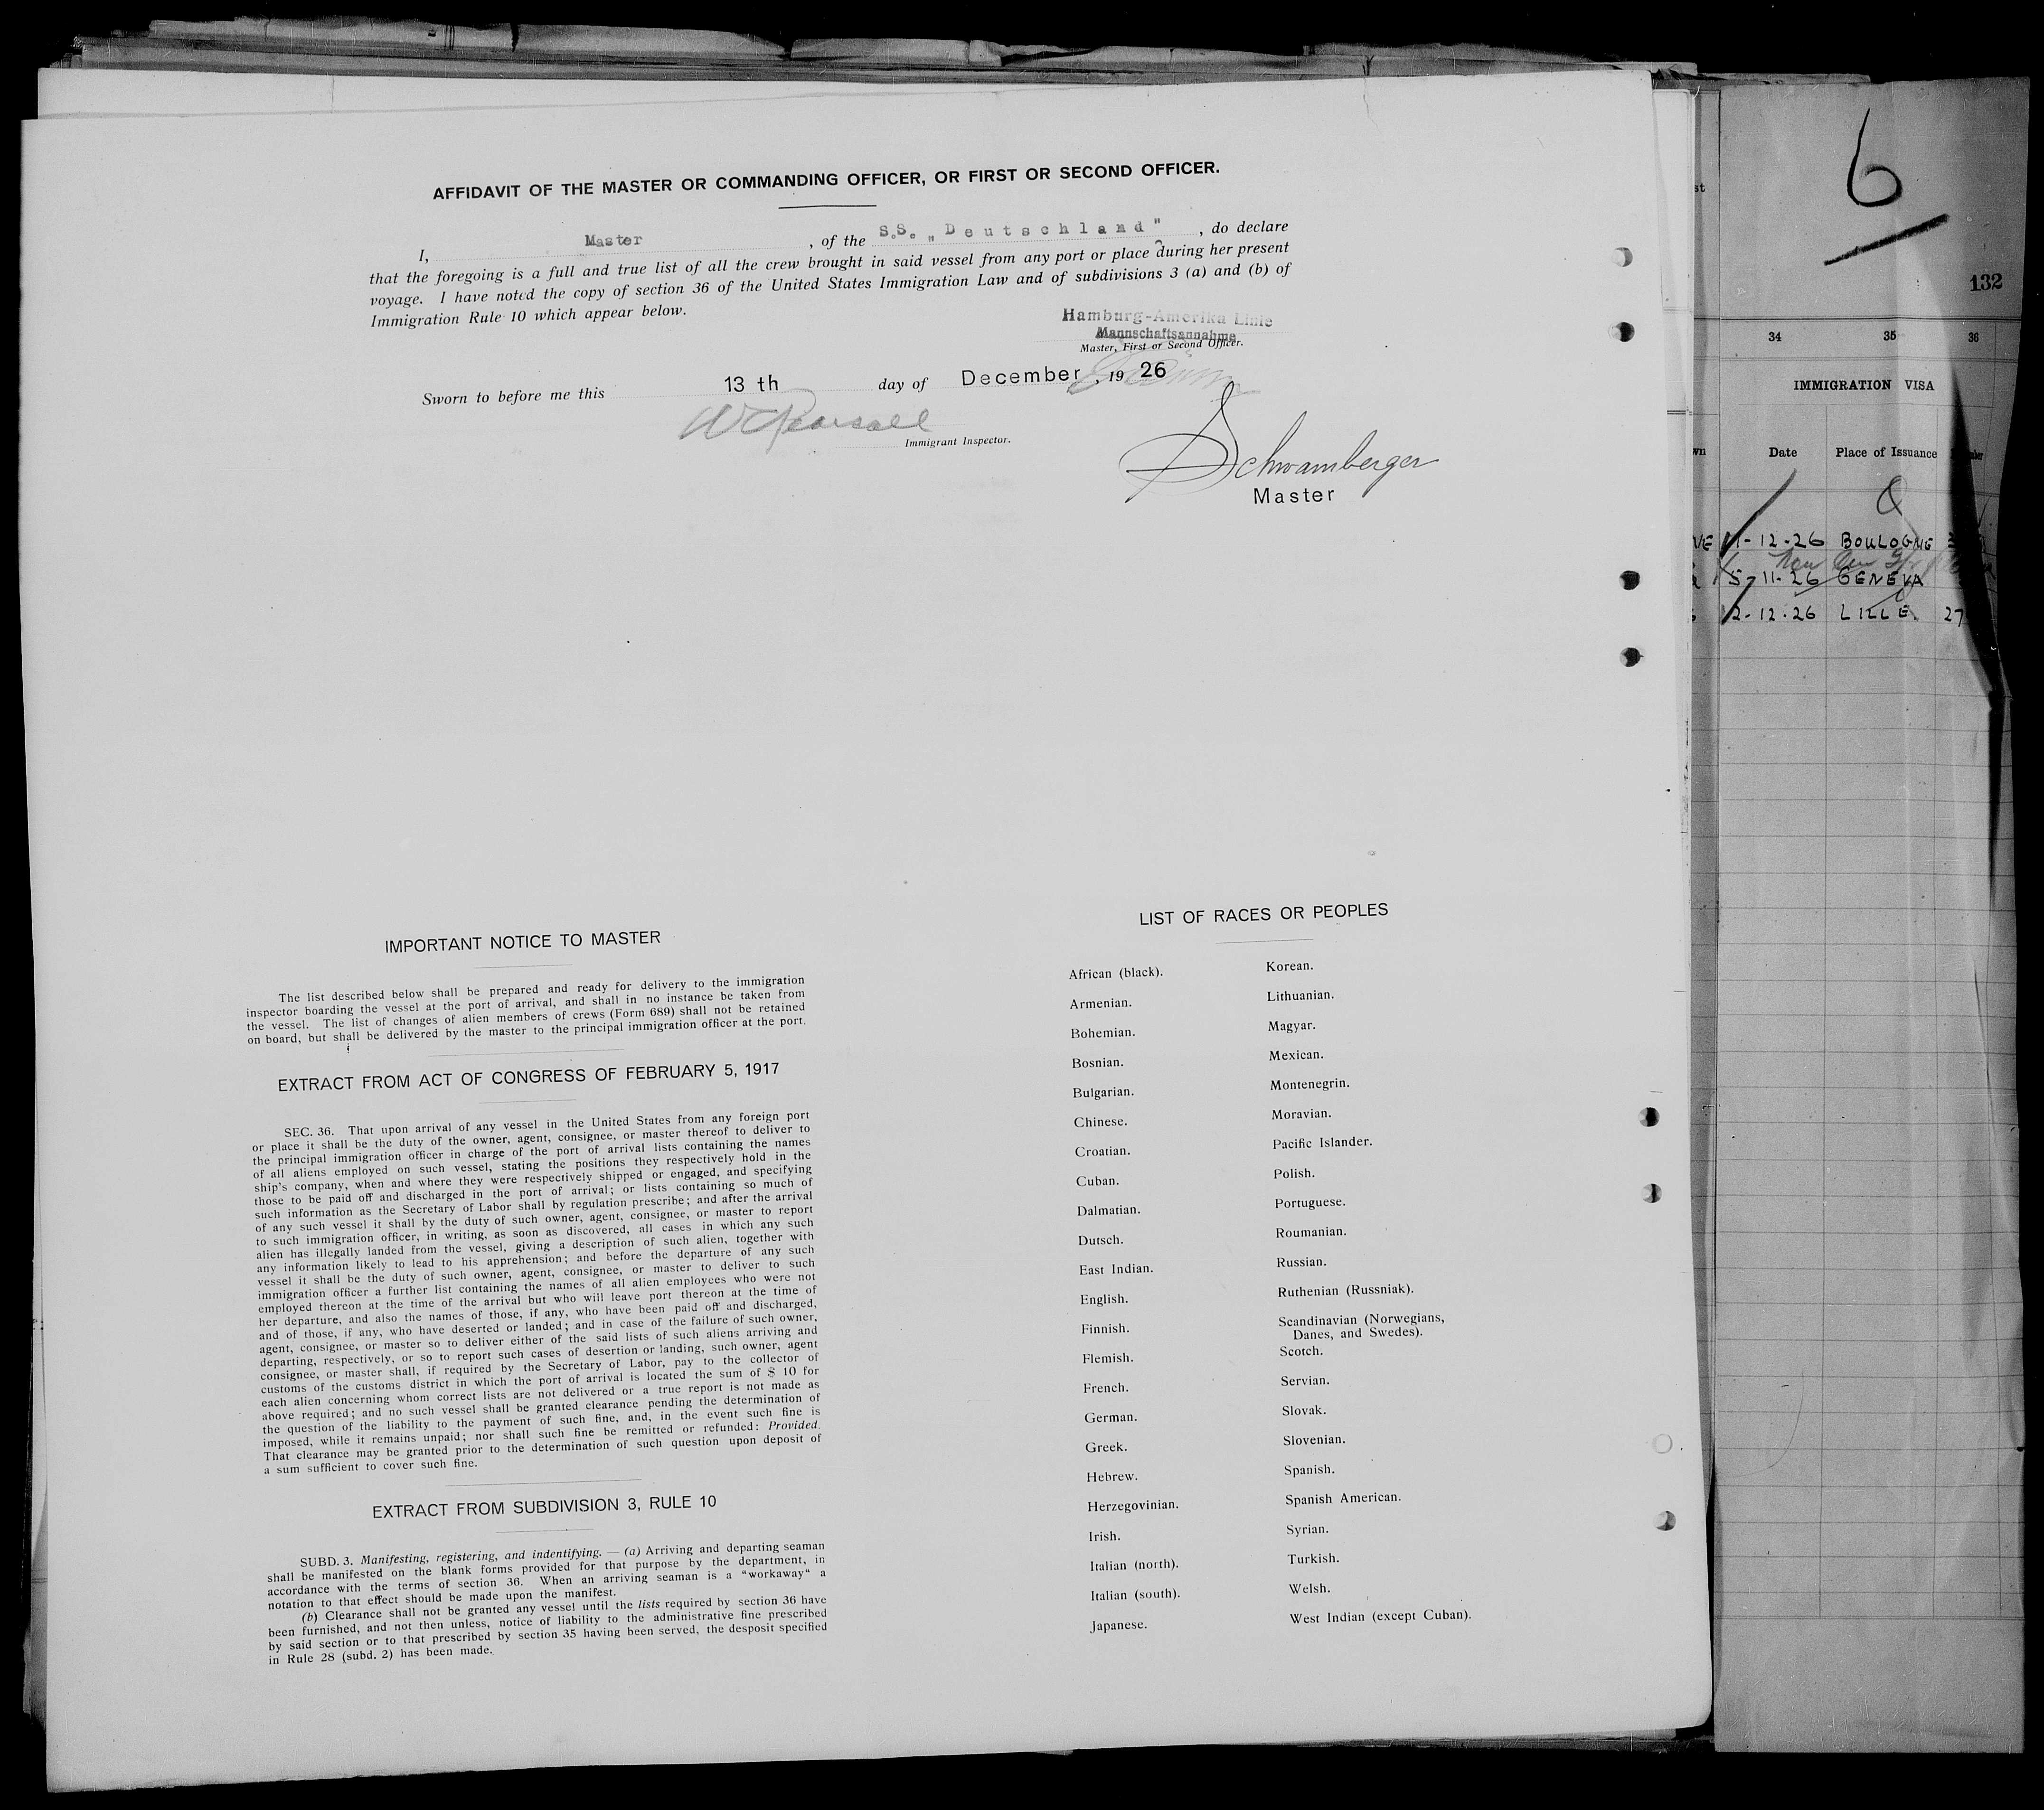 AFFIDAVIT OF THE MASTER OR COMMANDING OFFICER, OR FIRST OR SECOND OFFICER.
I, Master , of the S.S. „Deutschland" , do declare
that the foregoing is a full and true list of all the crew brought in said vessel from any port or place during her present
voyage. I have noted the copy of section 36 of the United States Immigration Law and of subdivisions 3 (a) and (b) of
Immigration Rule 10 which appear below.
Hamburg-Amerika Linie
Mannschaftsannahme
Master, First or Second Officer.
Sworn to before me this 13 th day of December , 19 26
Immigrant Inspector.
Schwamberger
Master
IMPORTANT NOTICE TO MASTER
The list described below shall be prepared and ready for delivery to the immigration
inspector boarding the vessel at the port of arrival, and shall in no instance be taken from
the vessel. The list of changes of alien members of crews (Form 689) shall not be retained
on board, but shall be delivered by the master to the principal immigration officer at the port.
EXTRACT FROM ACT OF CONGRESS OF FEBRUARY 5, 1917
SEC. 36. That upon arrival of any vessel in the United States from any foreign port
or place it shall be the duty of the owner, agent, consignee, or master thereof to deliver to
the principal immigration officer in charge of the port of arrival lists containing the names
of all aliens employed on such vessel, stating the positions they respectively hold in the
ship's company, when and where they were respectively shipped or engaged, and specifying
those to be paid off and discharged in the port of arrival; or lists containing so much of
such information as the Secretary of Labor shall by regulation prescribe; and after the arrival
of any such vessel it shall by the duty of such owner, agent, consignee, or master to report
to such immigration officer, in writing, as soon as discovered, all cases in which any such
alien has illegally landed from the vessel, giving a description of such alien, together with
any information likely to lead to his apprehension; and before the departure of any such
vessel it shall be the duty of such owner, agent, consignee, or master to deliver to such
immigration officer a further list containing the names of all alien employees who were not
employed thereon at the time of the arrival but who will leave port thereon at the time of
her departure, and also the names of those, if any, who have been paid off and discharged,
and of those, if any, who have deserted or landed; and in case of the failure of such owner,
agent, consignee, or master so to deliver either of the said lists of such aliens arriving and
departing, respectively, or so to report such cases of desertion or landing, such owner, agent
consignee, or master shall, if required by the Secretary of Labor, pay to the collector of
customs of the customs district in which the port of arrival is located the sum of $ 10 for
each alien concerning whom correct lists are not delivered or a true report is not made as
above required; and no such vessel shall be granted clearance pending the determination of
the question of the liability to the payment of such fine, and, in the event such fine is
imposed, while it remains unpaid; nor shall such fine be remitted or refunded: Provided.
That clearance may be granted prior to the determination of such question upon deposit of
a sum sufficient to cover such fine.
EXTRACT FROM SUBDIVISION 3, RULE 10
SUBD. 3. Manifesting, registering, and indentifying. — (a) Arriving and departing seaman
shall be manifested on the blank forms provided for that purpose by the department, in
accordance with the terms of section 36. When an arriving seaman is a "workaway" a
notation to that effect should be made upon the manifest.
(b) Clearance shall not be granted any vessel until the lists required by section 36 have
been furnished, and not then unless, notice of liability to the administrative fine prescribed
by said section or to that prescribed by section 35 having been served, the desposit specified
in Rule 28 (subd. 2) has been made.
LIST OF RACES OR PEOPLES
African (black).
Armenian.
Bohemian.
Bosnian.
Bulgarian.
Chinese.
Croatian.
Cuban.
Dalmatian.
Dutsch.
East Indian.
English.
Finnish.
Flemish.
French.
German.
Greek.
Hebrew.
Herzegovinian.
Irish.
Italian (north).
Italian (south).
Japanese.
Korean.
Lithuanian.
Magyar.
Mexican.
Montenegrin.
Moravian.
Pacific Islander.
Polish.
Portuguese.
Roumanian.
Russian.
Ruthenian (Russniak).
Scandinavian (Norwegians,
Danes, and Swedes).
Scotch.
Servian.
Slovak.
Slovenian.
Spanish.
Spanish American.
Syrian.
Turkish.
Welsh.
West Indian (except Cuban).
6
132
34 35 36
IMMIGRATION VISA
Date Place of Issuance
1-12-26 BOULOGNE
5-11-26 GENEVA
2-12-26 LILLE 27